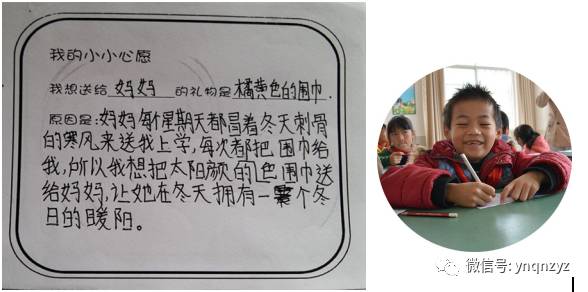 我的小小心愿
我想送给 妈妈 的礼物是 橘黄色的围巾.
原因是:妈妈每个星期天都冒着冬天刺骨
的寒风来送我上学,每次都把围巾给
我,所以我想把太阳颜的色围巾送
给妈妈,让她在冬天拥有一个冬
日的暖阳。
微信号: ynqnzyz